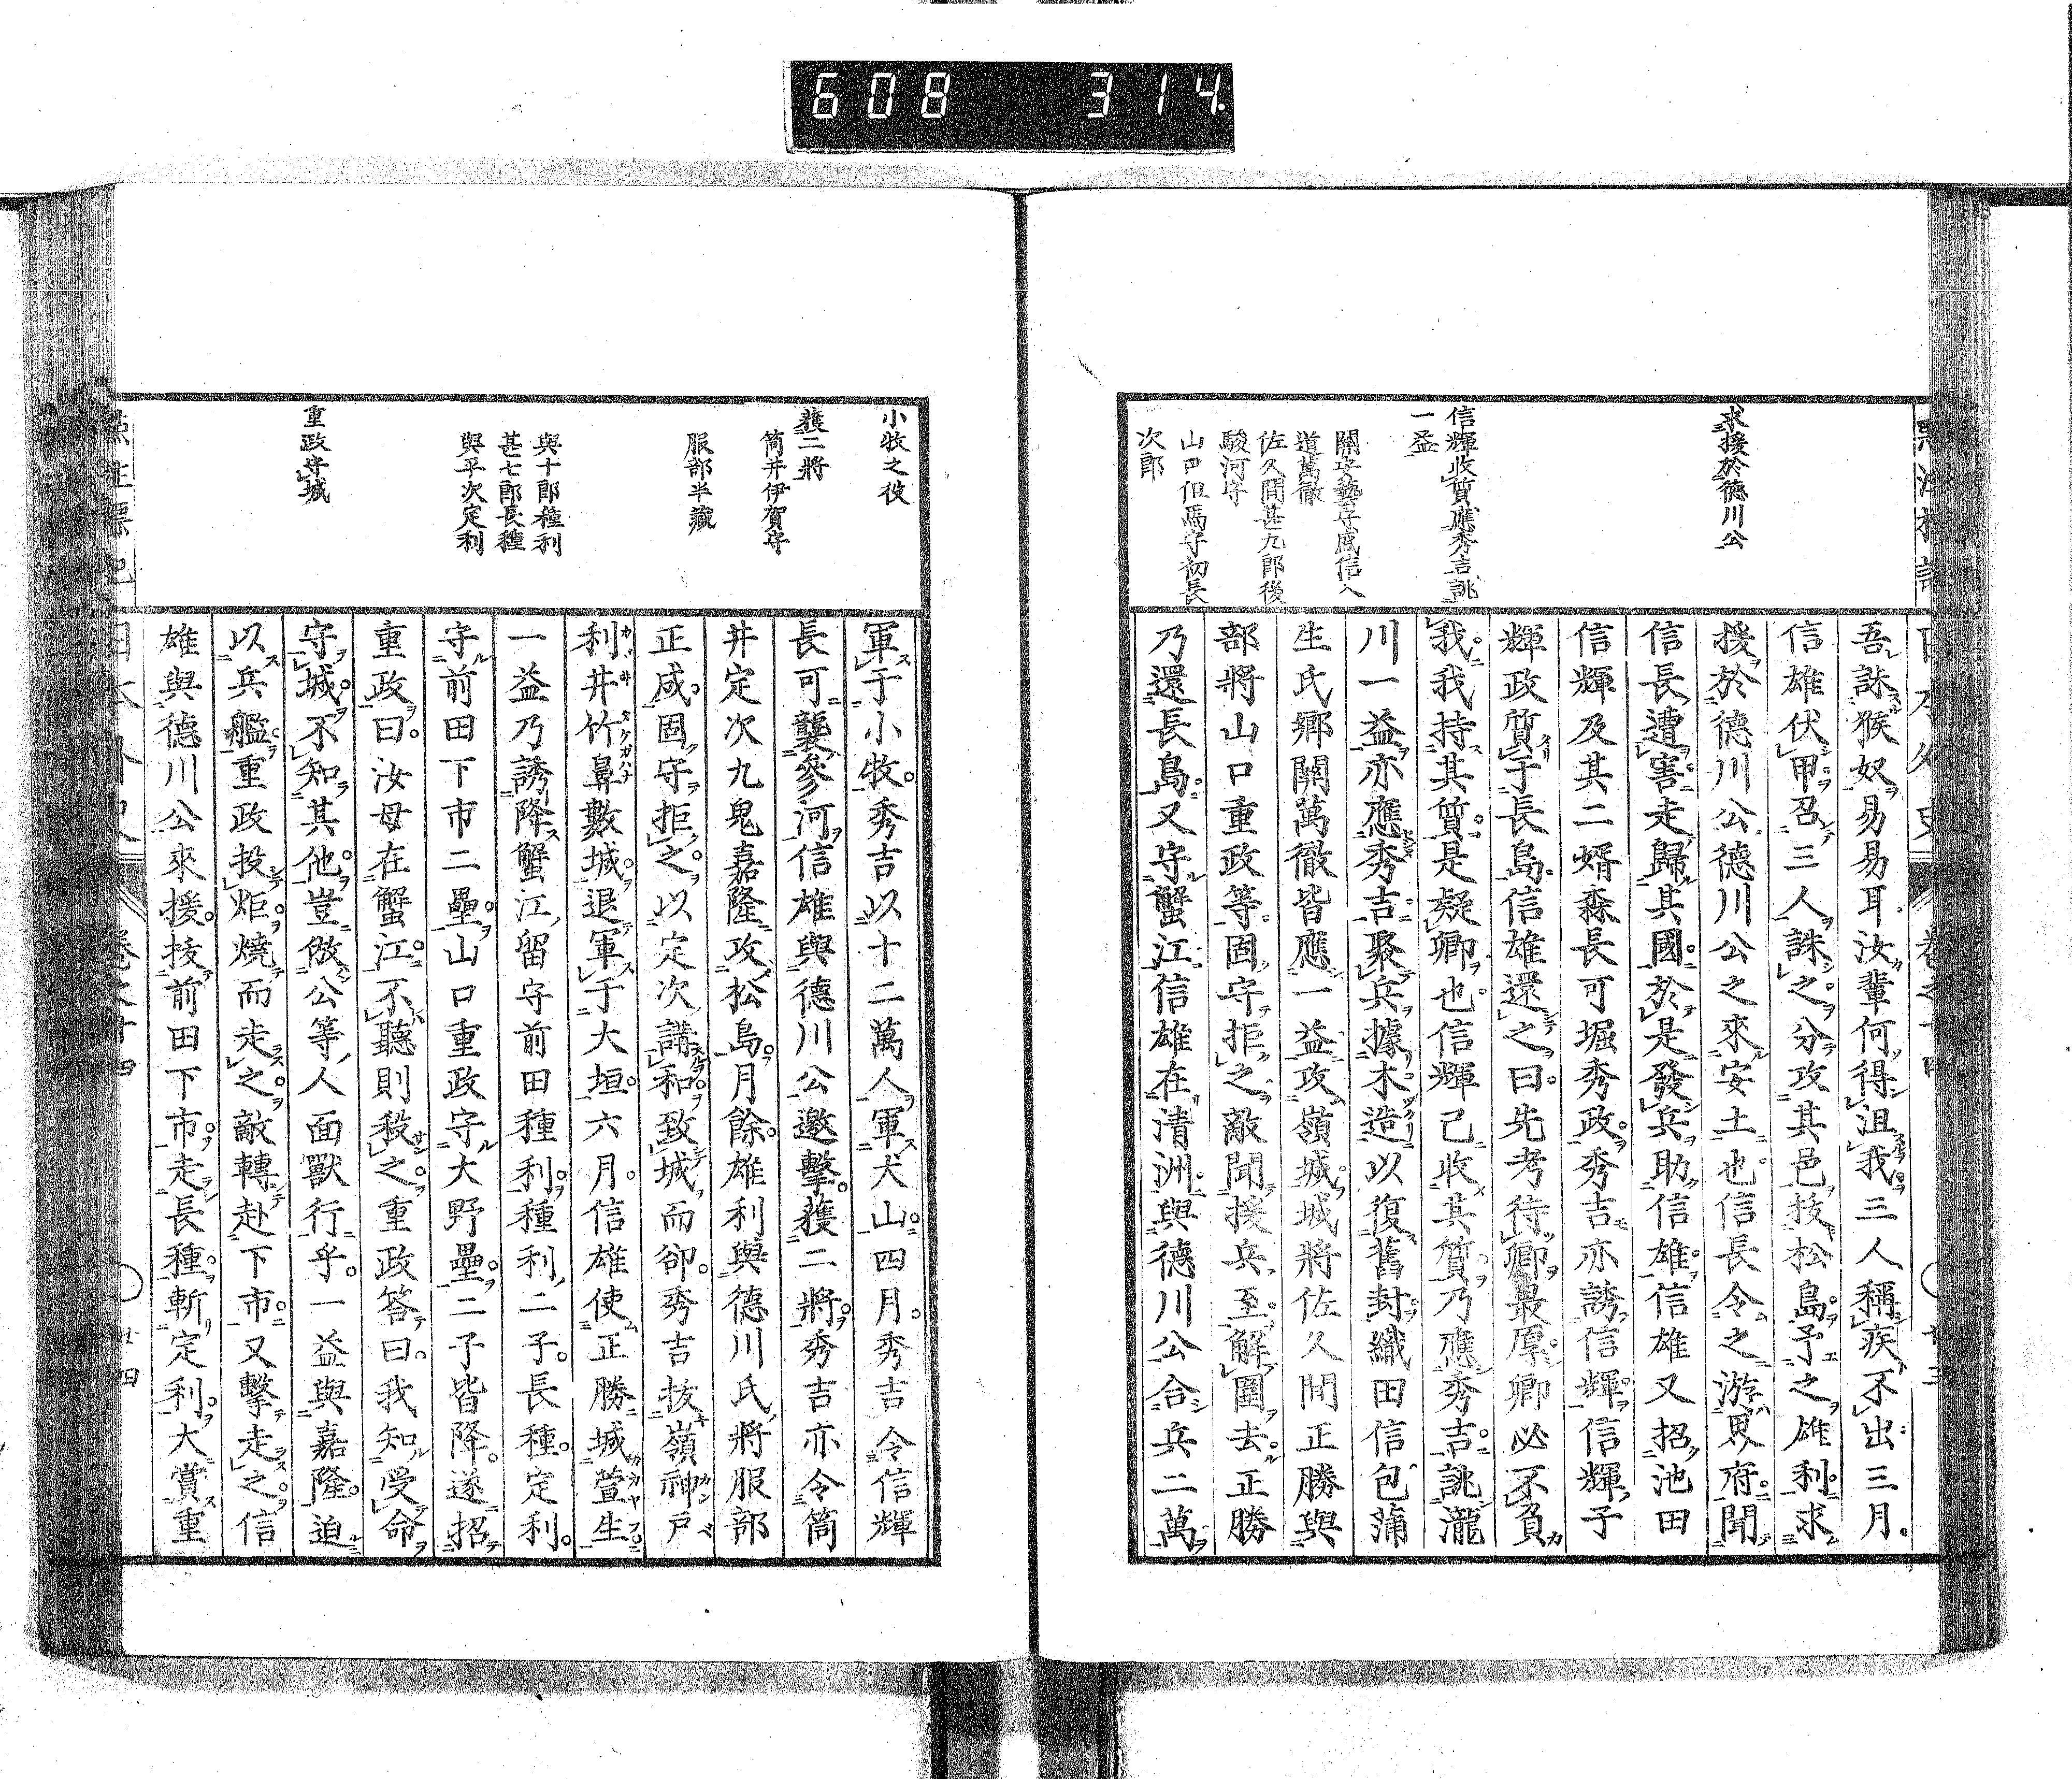 608 314
求援於德川公
信輝收質應秀吉誂
一益
關安藝守盛信入
道萬徹
佐久間甚九郎後
駿河守
山口但馬守初長
次郎
吾誅猴奴易易耳汝輩何得沮我三人稱疾不出三月
信雄伏甲召三人誅之分攻其邑拔松島予之雄利求
援於德川公德川公之來安土也信長令之游畏府聞
信長遭害走歸其國於是發兵助信雄信雄又招池田
信輝及其二婿森長可堀秀政秀吉亦誘信輝信輝子
輝政質于長島信雄還之曰先考待卿最厚卿必不負
我我持其質是疑卿也信輝已收其質乃應秀吉誂瀧
川一益亦應秀吉聚兵據木造以復舊封織田信包蒲
生氏鄉關萬徹皆應一益攻嶺城城將佐久間正勝與
部將山口重政等固守拒之敵聞援兵至解圍去正勝
乃還長島又守蟹江信雄在清洲與德川公合兵二萬
小牧之役
獲二將
筒井伊賀守
服部半藏
與十郎種利
甚七郎長種
與平次定利
重政守城
軍于小牧秀吉以十二萬人軍犬山四月秀吉令信輝
長可襲參河信雄與德川公邀擊獲二將秀吉亦令筒
井定次九鬼嘉隆攻松島月餘雄利與德川氏將服部
正成固守拒之以定次講和致城而卻秀吉拔嶺神戶
利井竹鼻數城退軍于大垣六月信雄使正勝城萱生
一益乃誘降蟹江留守前田種利種利二子長種定利
守前田下市二壘山口重政守大野壘二子皆降遂招
重政曰汝母在蟹江不聽則殺之重政答曰我知受命
守城不知其他豈倣公等人面獸行乎一益與嘉隆迫
以兵艦重政投炬燒而走之敵轉赴下市又擊走之信
雄與德川公來援拔前田下市走長種斬定利大賞重